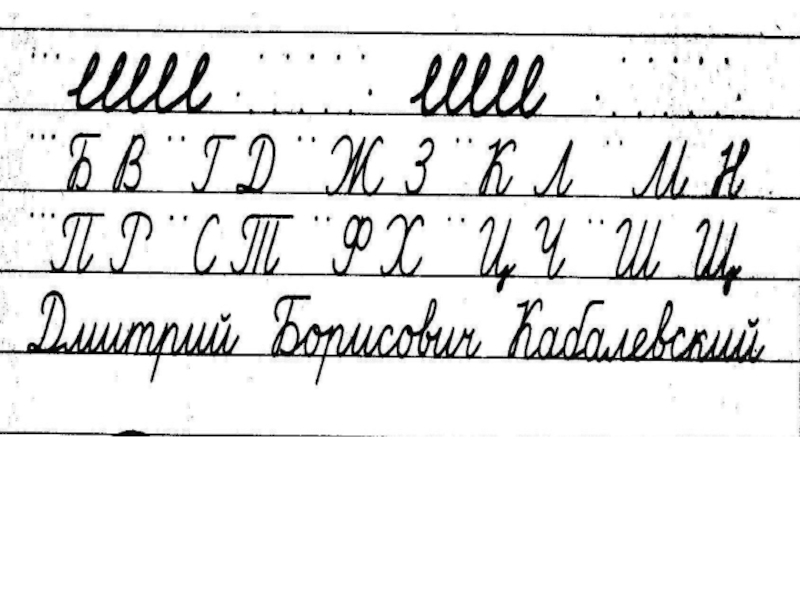 Б В Г Д Ж З К Л М Н
П Р С Т Ф Х Ц Ч Ш Щ
Дмитрий Борисович Кабалевский